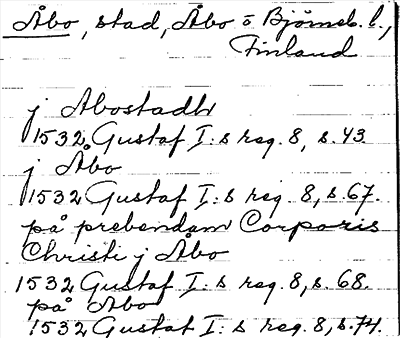 Åbo, stad, Åbo o Björneb. l.,
Finland
j Abostadh
1532 Gustaf I:s reg. 8, s. 43.
j Åbo
1532 Gustaf I:s reg. 8, s. 67.
på prebendam Corporis
Christi j Åbo
1532 Gustaf I:s reg. 8, s. 68.
på Åbo
1532 Gustaf I:s reg. 8, s. 74.